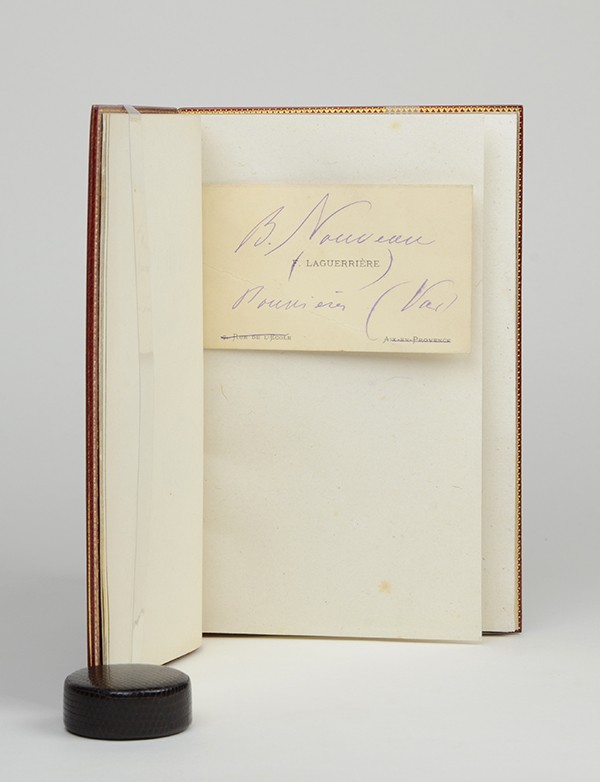 B. Nouveau
( F. LAGUERRIÈRE )
Pourrières (Var)
2, RUE DE L'ÉCOLE AIX-EN-PROVENCE